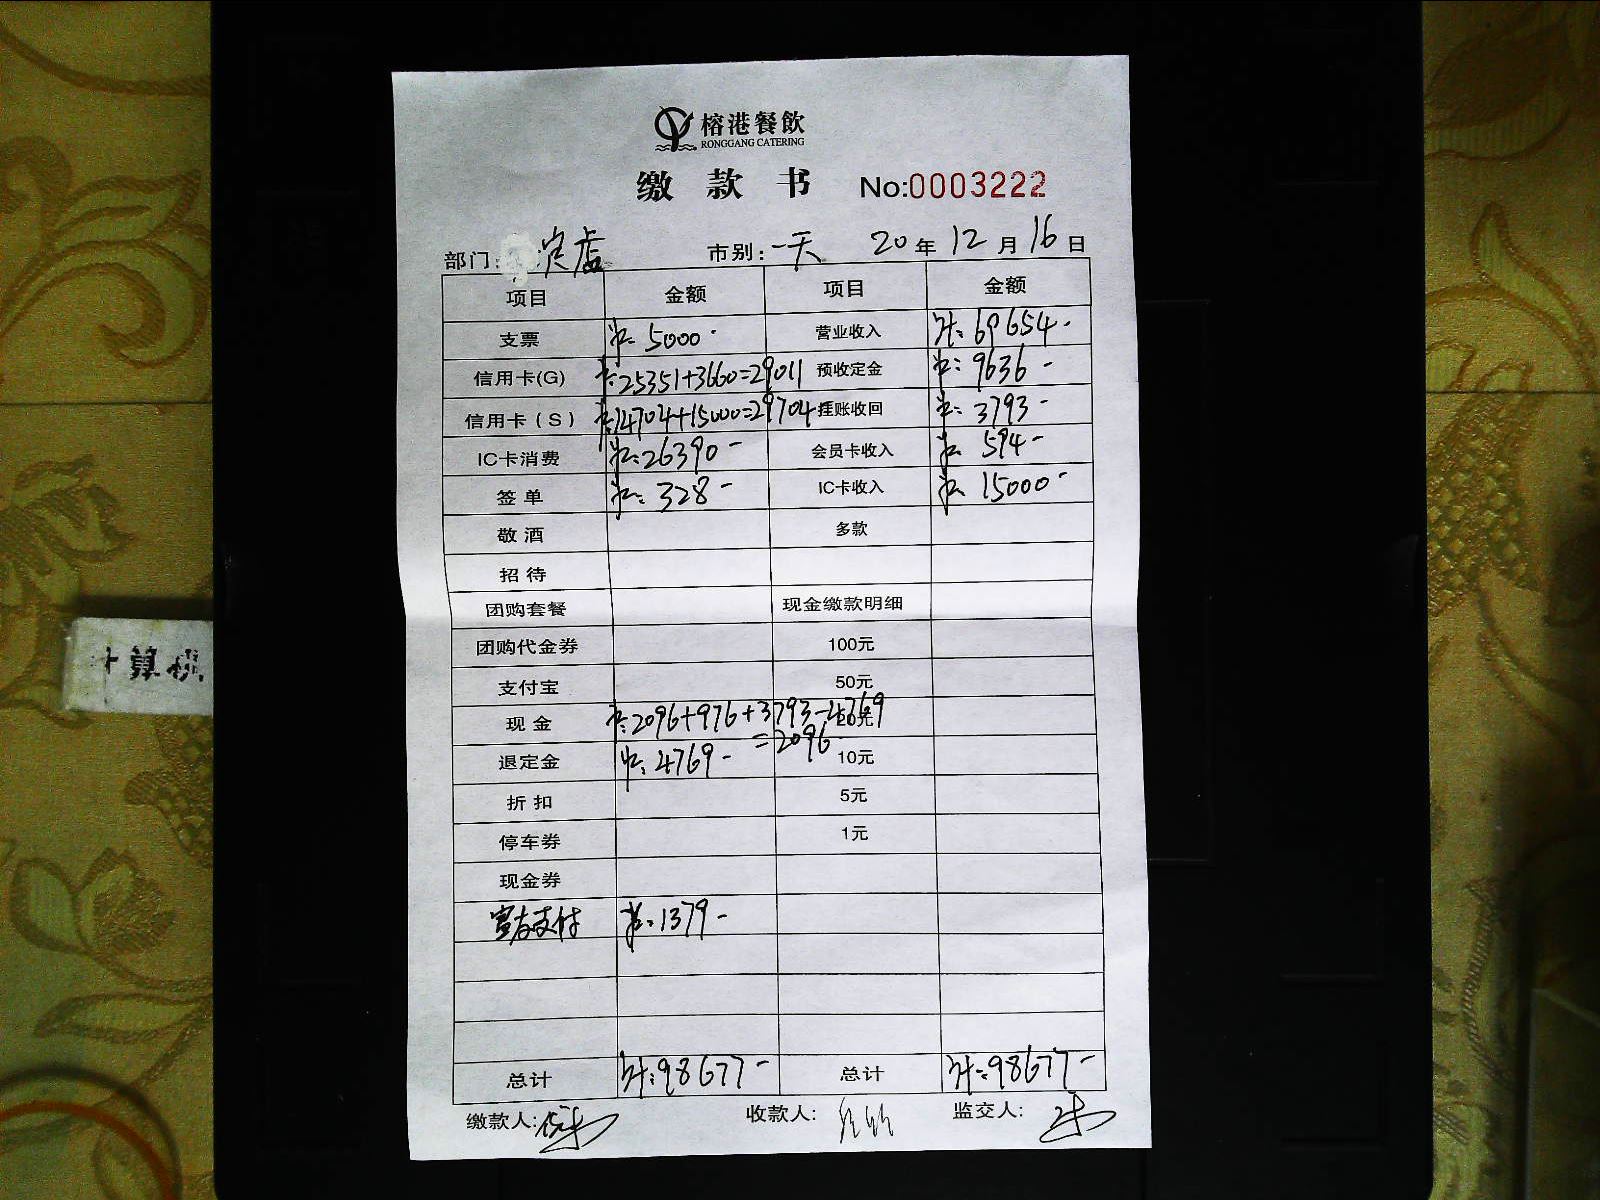 榕港餐飲
RONGGANG CATERING
缴款书 No:0003222
部门: 定店 市别:一天 20年12月16日
项目 金额 项目 金额
支票 5000- 营业收入 计:69654-
信用卡(G) 25351+3660=29011 预收定金 9636-
信用卡(S) 14704+15000=29704 挂账收回 3793-
IC卡消费 26390- 会员卡收入 594-
签单 328- IC卡收入 15000-
敬酒 多款
招待
团购套餐 现金缴款明细
团购代金券 100元
支付宝 50元
现金 2096+976+3793-4769 20元
=2096-
退定金 4769- 10元
折扣 5元
停车券 1元
现金券
支付 1379-
总计 计:98677- 总计 计:98677-
缴款人: 收款人: 监交人:
十算